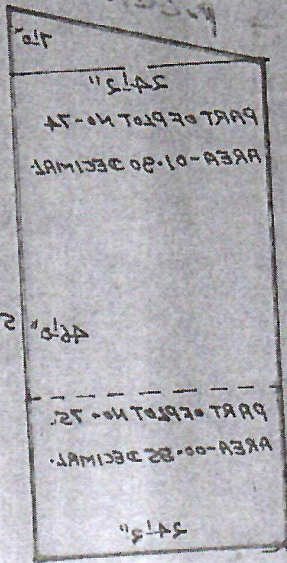 7'0"
24'2"
PART OF PLOT NO-74
AREA-01.90 DECIMAL
46'0"
PART OF PLOT NO-75.
AREA-00-55 DECIMAL.
24'2"